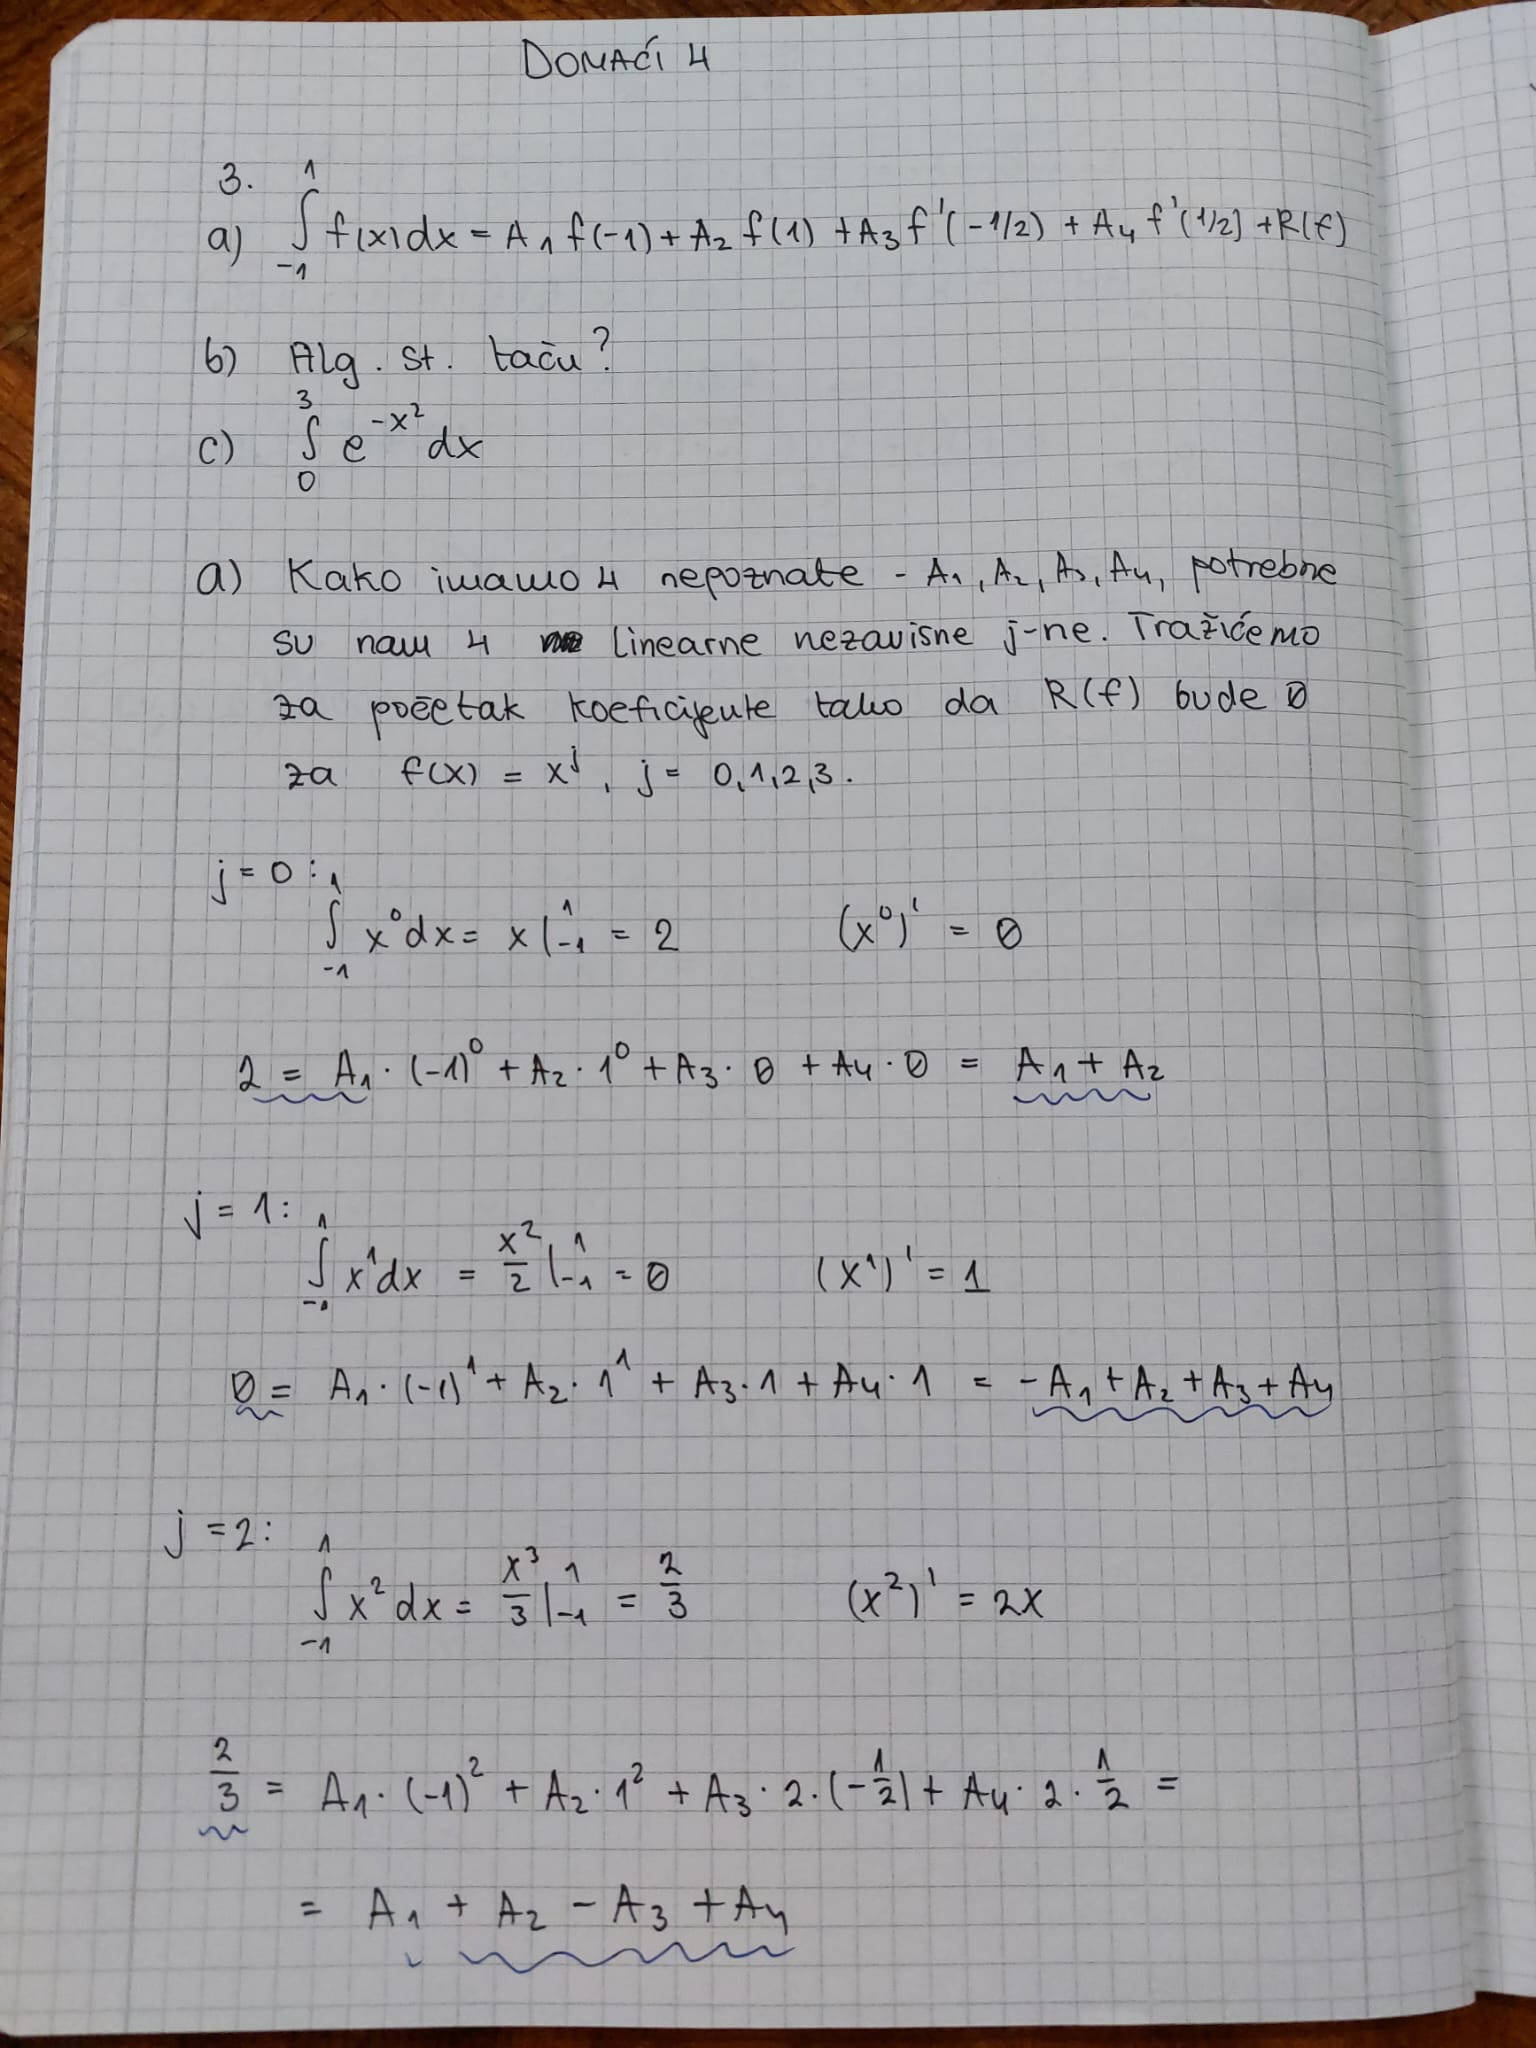 DOMAĆI 4
3.
a) ∫_{-1}^{1} f(x)dx = A₁ f(-1) + A₂ f(1) + A₃ f'(-1/2) + A₄ f'(1/2) + R(f)
b) Alg. st. taču?
c) ∫_{0}^{3} e^{-x²} dx
a) Kako imamo 4 nepoznate - A₁, A₂, A₃, A₄, potrebne
su nam 4 linearne nezavisne j-ne. Tražićemo
za početak koeficijente tako da R(f) bude 0
za f(x) = x^j, j = 0,1,2,3.
j = 0:
∫_{-1}^{1} x⁰dx = x |_{-1}^{1} = 2 (x⁰)' = 0
2 = A₁ · (-1)⁰ + A₂ · 1⁰ + A₃ · 0 + A₄ · 0 = A₁ + A₂
j = 1:
∫_{-1}^{1} x¹dx = x²/2 |_{-1}^{1} = 0 (x¹)' = 1
0 = A₁ · (-1)¹ + A₂ · 1¹ + A₃ · 1 + A₄ · 1 = -A₁ + A₂ + A₃ + A₄
j = 2:
∫_{-1}^{1} x² dx = x³/3 |_{-1}^{1} = 2/3 (x²)' = 2x
2/3 = A₁ · (-1)² + A₂ · 1² + A₃ · 2 · (-1/2) + A₄ · 2 · 1/2 =
= A₁ + A₂ - A₃ + A₄